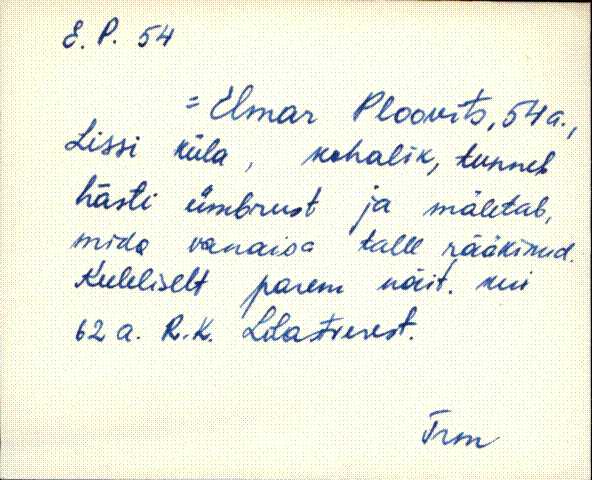 E. P. 54
= Elmar Ploovits, 54 a.,
Lissi küla, kohalik, tunneb
hästi ümbrust ja mäletab,
mida vanaisa talle rääkinud.
Keeleliselt parem näit. kui
62 a. R.K. Lilastverest.
Trm